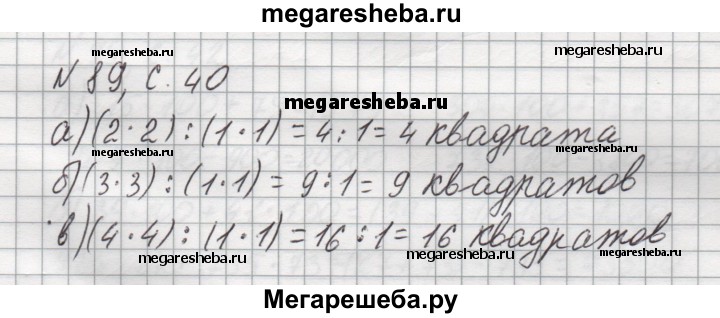 megaresheba.ru
megaresheba.ru megaresheba.ru
N 89, с. 40
megaresheba.ru
а) (2 · 2) : (1 · 1) = 4 : 1 = 4 квадрата
megaresheba.ru megaresheba.ru
б) (3 · 3) : (1 · 1) = 9 : 1 = 9 квадратов
megaresheba.ru
в) (4 · 4) : (1 · 1) = 16 : 1 = 16 квадратов
megaresheba.ru megaresheba.ru
Мегарешеба.ру